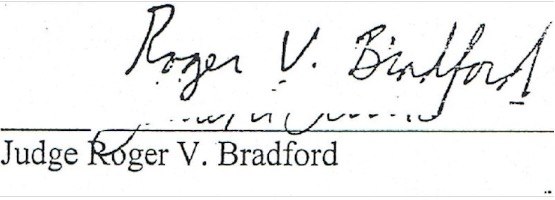 Roger V. Bradford
Judge Roger V. Bradford